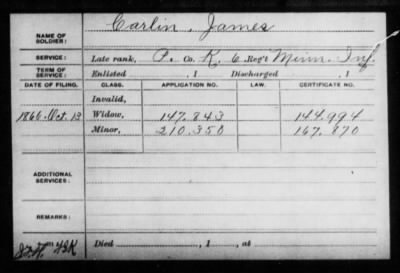 Carlin, James
NAME OF SOLDIER:
SERVICE: Late rank, P. Co. K, 6 Reg't Minn. Inf.
TERM OF SERVICE: Enlisted , 1 Discharged , 1
DATE OF FILING. CLASS. APPLICATION NO. LAW. CERTIFICATE NO.
Invalid,
1866, Oct. 13 Widow, 147.843 144.994
Minor, 210.350 167.870
ADDITIONAL SERVICES:
REMARKS:
Died , 1 , at